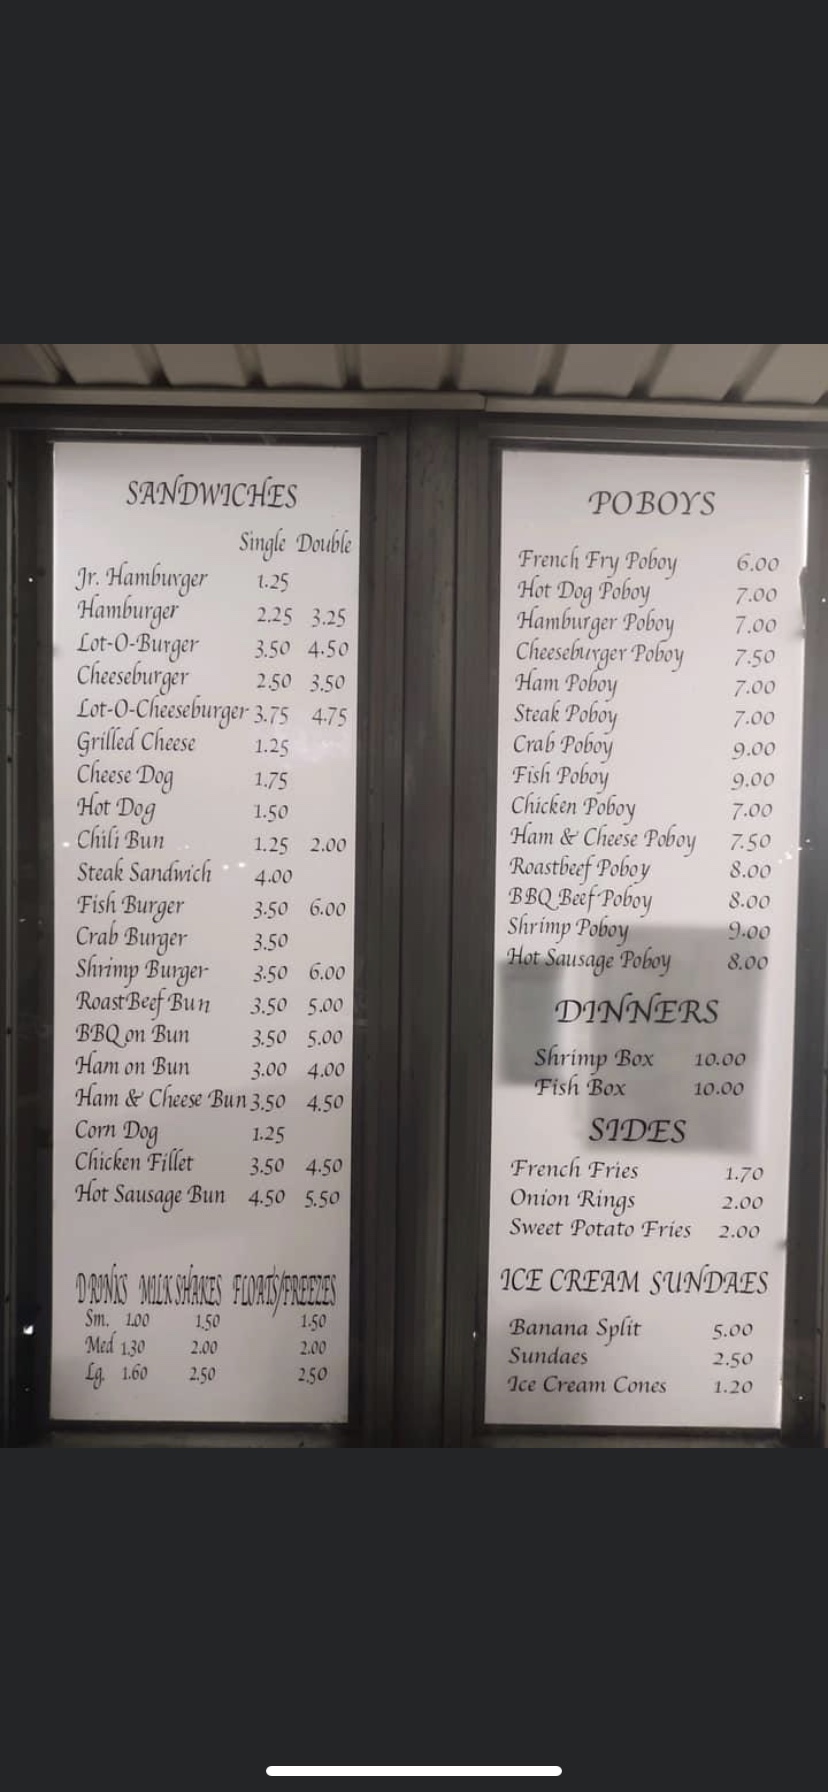 SANDWICHES
Single Double
Jr. Hamburger 1.25
Hamburger 2.25 3.25
Lot-O-Burger 3.50 4.50
Cheeseburger 2.50 3.50
Lot-O-Cheeseburger 3.75 4.75
Grilled Cheese 1.25
Cheese Dog 1.75
Hot Dog 1.50
Chili Bun 1.25 2.00
Steak Sandwich 4.00
Fish Burger 3.50 6.00
Crab Burger 3.50
Shrimp Burger 3.50 6.00
RoastBeef Bun 3.50 5.00
BBQ on Bun 3.50 5.00
Ham on Bun 3.00 4.00
Ham & Cheese Bun 3.50 4.50
Corn Dog 1.25
Chicken Fillet 3.50 4.50
Hot Sausage Bun 4.50 5.50
DRINKS MILKSHAKES FLOATS/FREEZES
Sm. 1.00 1.50 1.50
Med 1.30 2.00 2.00
Lg. 1.60 2.50 2.50
POBOYS
French Fry Poboy 6.00
Hot Dog Poboy 7.00
Hamburger Poboy 7.00
Cheeseburger Poboy 7.50
Ham Poboy 7.00
Steak Poboy 7.00
Crab Poboy 9.00
Fish Poboy 9.00
Chicken Poboy 7.00
Ham & Cheese Poboy 7.50
Roastbeef Poboy 8.00
BBQ Beef Poboy 8.00
Shrimp Poboy 9.00
Hot Sausage Poboy 8.00
DINNERS
Shrimp Box 10.00
Fish Box 10.00
SIDES
French Fries 1.70
Onion Rings 2.00
Sweet Potato Fries 2.00
ICE CREAM SUNDAES
Banana Split 5.00
Sundaes 2.50
Ice Cream Cones 1.20